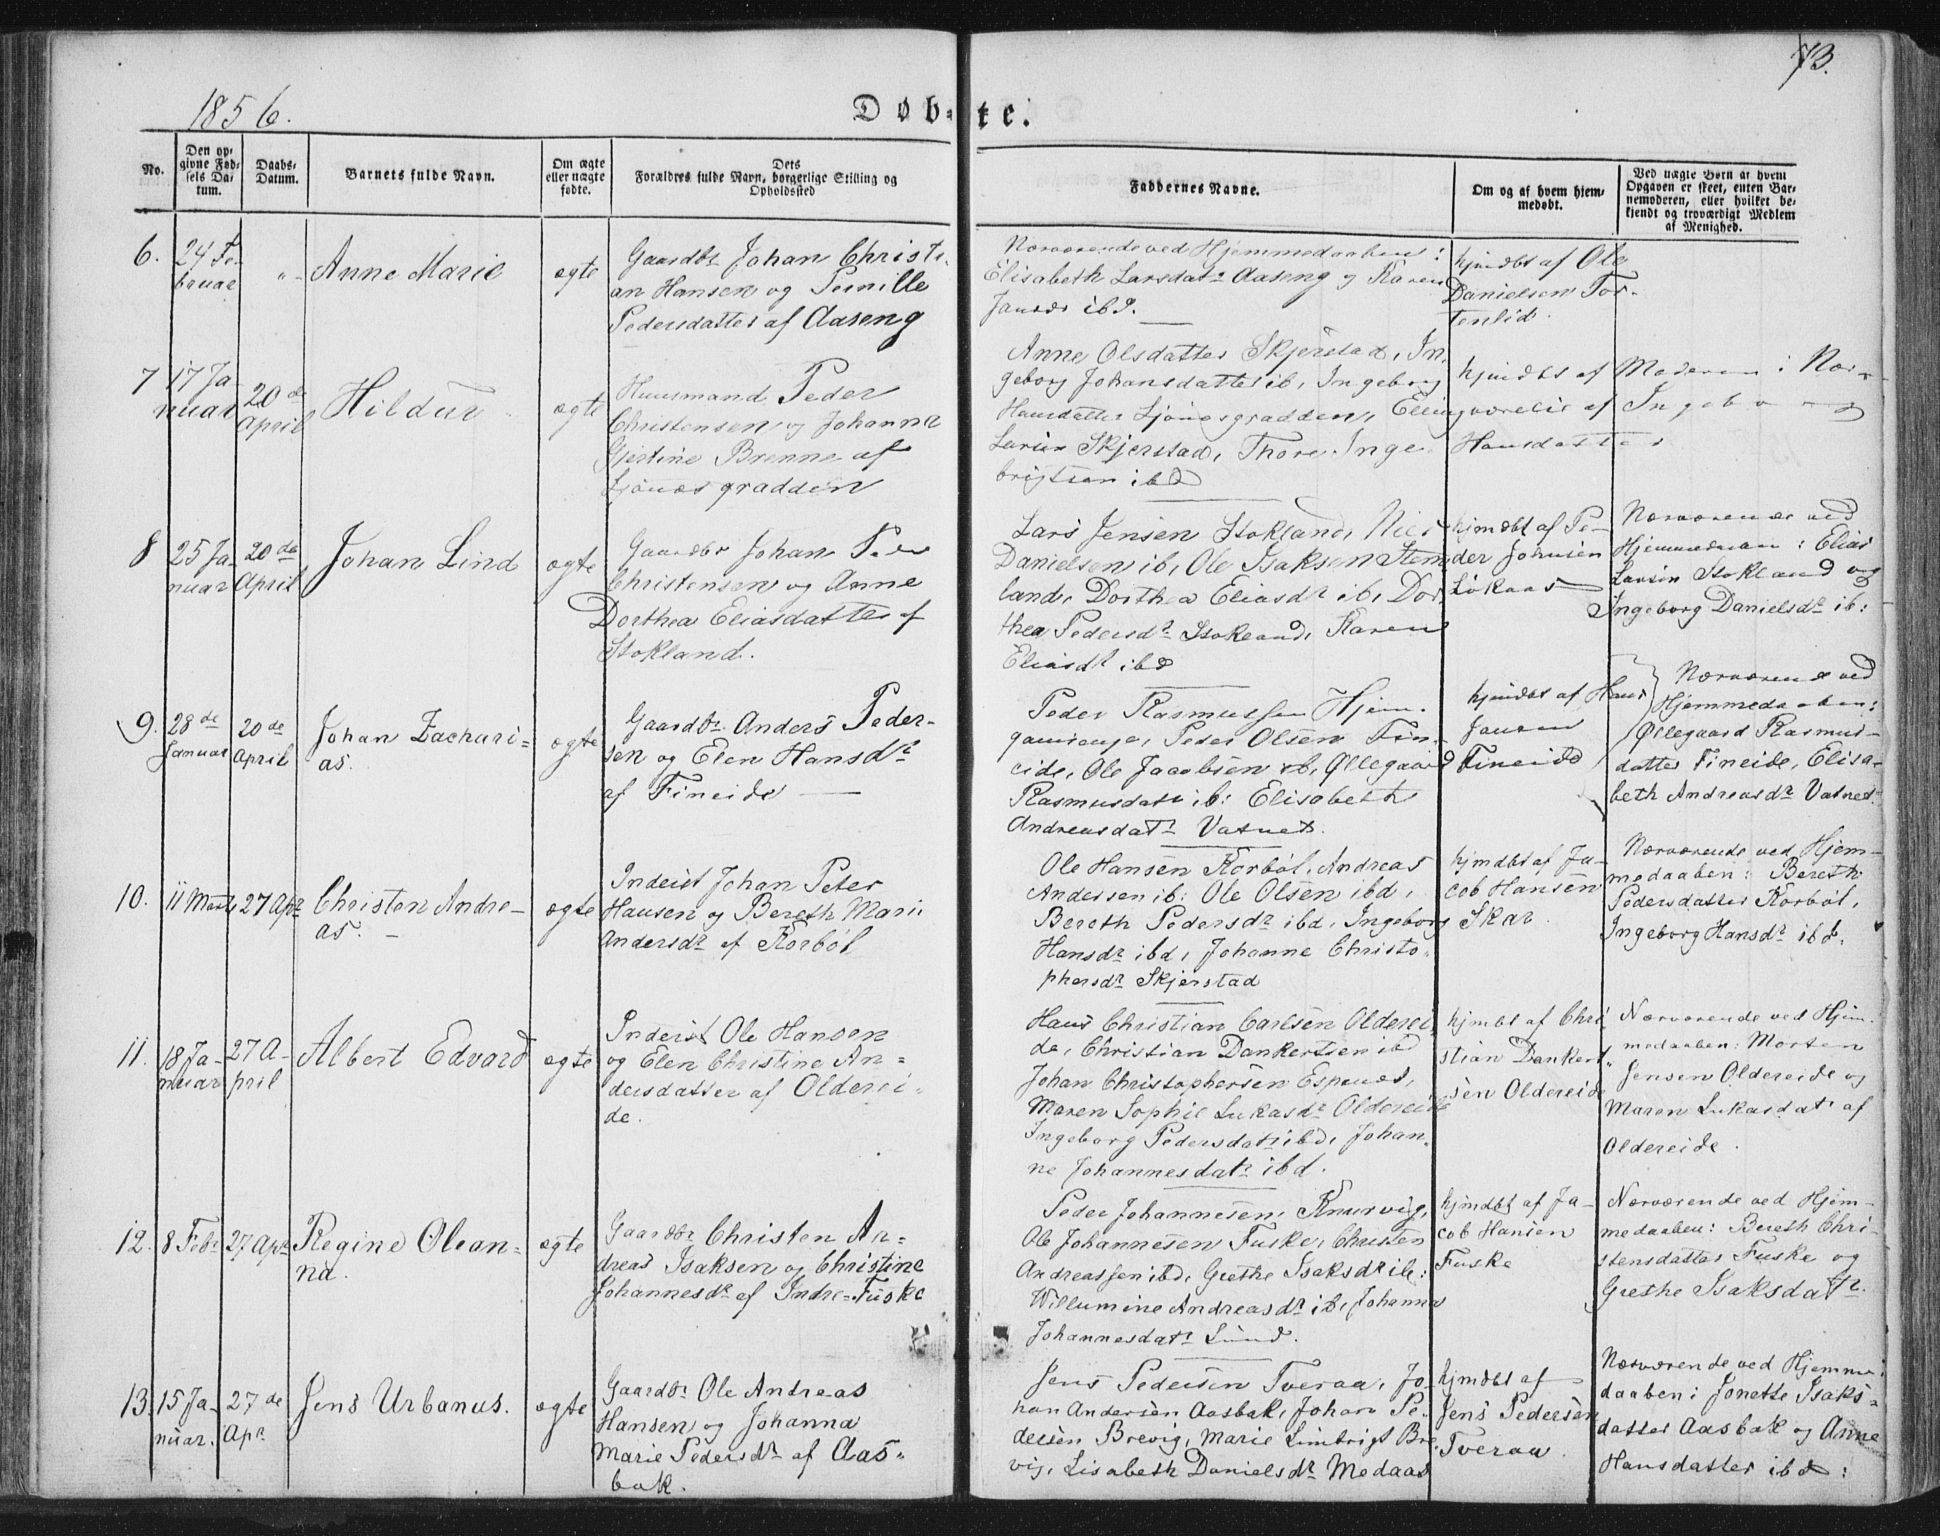 1856.
Døb-te.
73.
No.
Den op-
givne Fød-
sels Da-
tum.
Daabs-
Datum.
Barnets fulde Navn.
Om ægte
eller uægte
fødte.
Dets
Forældres fulde Navn, borgerlige Stilling og
Opholdssted
Faddernes Navne.
Om og af hvem hjem-
medøbt.
Ved uægte Børn at hvem
Opgaven er skeet, enten Bar-
nemoderen, eller hvilket be-
kjendt og troværdigt Medlem
af Menighed.
6.
24 Fe-
bruar
"
Anne Marie
ægte
Gaardbr Johan Christi-
an Hansen og Pernille
Pedersdatter af Aaseng
Nærværende ved Hjemmedaaben:
Elisabeth Larsdatr Aaseng og Karen
ibd.
hjmdbt af Ole
Danielsen Tor-
tenlid.
7
17 Ja-
nuar
20de
April
Hildur
ægte
Huusmand Peder
Christensen og Johanna
Gjertine Brenne af
Ljønesgradden
Anne Olsdatter Skjerstad, In-
geborg Johansdatter ib, Ingeborg
Hansdatter Ljønesgradden, Elling
Larsen Skjerstad, Thore Inge-
brigtsen ibd
hjmdbt af Moderen i Nær-
værelse af Ingeborg
Hansdatter
8
25 Ja-
nuar
20de
April
Johan Lind
ægte
Gaardbr Johan Peder
Christensen og Anne
Dorthea Eliasdatter af
Stokland.
Lars Jensen Stokland, Niels
Danielsen ib, Ole Isaksen Stem-
land, Dorthea Eliasdr ib, Dor-
thea Pedersdr Stokland, Karen
Eliasdr ibd
hjmdbt af Pe-
der Johnsen
Løkaas
Nærværende ved
Hjemmedaaben: Elias
Larsen Stokland og
Ingeborg Danielsdr ib:
9.
28de
Januar
20de
April
Johan Zachari-
as.
ægte
Gaardbr Anders Peder-
sen og Elen Hansdr
af Fineide
Peder Rasmussen Hjem-
Peder Olsen Fin-
eide, Ole Jacobsen ib, Øllegaard
Rasmusdatr ib: Elisabeth
Andreasdatr Vatnet.
hjmdbt af Hans
Jansen
Fineide
Nærværende ved
Hjemmedaaben:
Øllegaard Rasmus-
datter Fineide, Elisa-
beth Andreasdr Vatnet.
10.
11 Marts
27 Apr
Christen Andre-
as.
ægte
Inderst Johan Peter
Hansen og Bereth Marie
Andersdr af Korbøl
Ole Hansen Korbøl, Andreas
Andersen ib: Ole Olsen ibd,
Bereth Pedersdr ibd, Ingeborg
Hansdr ibd, Johanne Christo-
phersdr Skjerstad
hjmdbt af Ja-
cob Hansen
Skar
Nærværende ved Hjem-
medaaben: Bereth
Pedersdatter Korbøl,
Ingeborg Hansdr ibd.
11.
18 Ja-
nuar
27 A-
pril
Albert Edvard
ægte
Inderst Ole Hansen
og Elen Christine An-
dersdatter af Olderei-
de.
Hans Christian Carlsen Olderei-
de, Christian Dankertsen ibd
Johan Christophersen Espenes,
Maren Sophie Lukasdr Oldereide
Ingeborg Pedersdatr ibd, Johan-
ne Johannesdatr ibd.
hjmbt af Chri-
stian Dankert-
sen Oldereide
Nærværende ved Hjem-
medaaben: Morten
Jensen Oldereide og
Maren Lukasdatr af
Oldereide.
12.
8 Febr
27 Apr
Regine Olean-
na.
ægte
Gaardbr Christen An-
dreas Isaksen og Christine
Johannesdr af Indre-Fuske
Peder Johannesen, Knurvig,
Ole Johannesen Fuske, Christen
Andreassen ibd, Grethe Isaksdr ib:
Willumine Andreasdr ib, Johanna
Johannesdatr Lund.
hjmdbt af Ja-
cob Hansen
Fuske
Nærværende ved Hjem-
medaaben: Bereth Chri-
stensdatter Fuske og
Grethe Isaksdatr.
13.
15 Ja-
nuar.
27de
Apr
Jens Urbanus.
ægte
Gaardbr Ole Andreas
Hansen og Johanna
Marie Pedersdr af Aas-
bak.
Jens Pedersen Tveraa, Jo-
han Andersen Aasbak, Johan Pe-
dersen Brevig, Marie Limbrigt Bre-
vig, Lisabeth Danielsdr Medaas
hjmdbt af
Jens Pedersen
Tveraa
Nærværende ved Hjemme-
daaben: Jonette Isaks-
datter Aasbak og Anne
Hansdatter ibd: